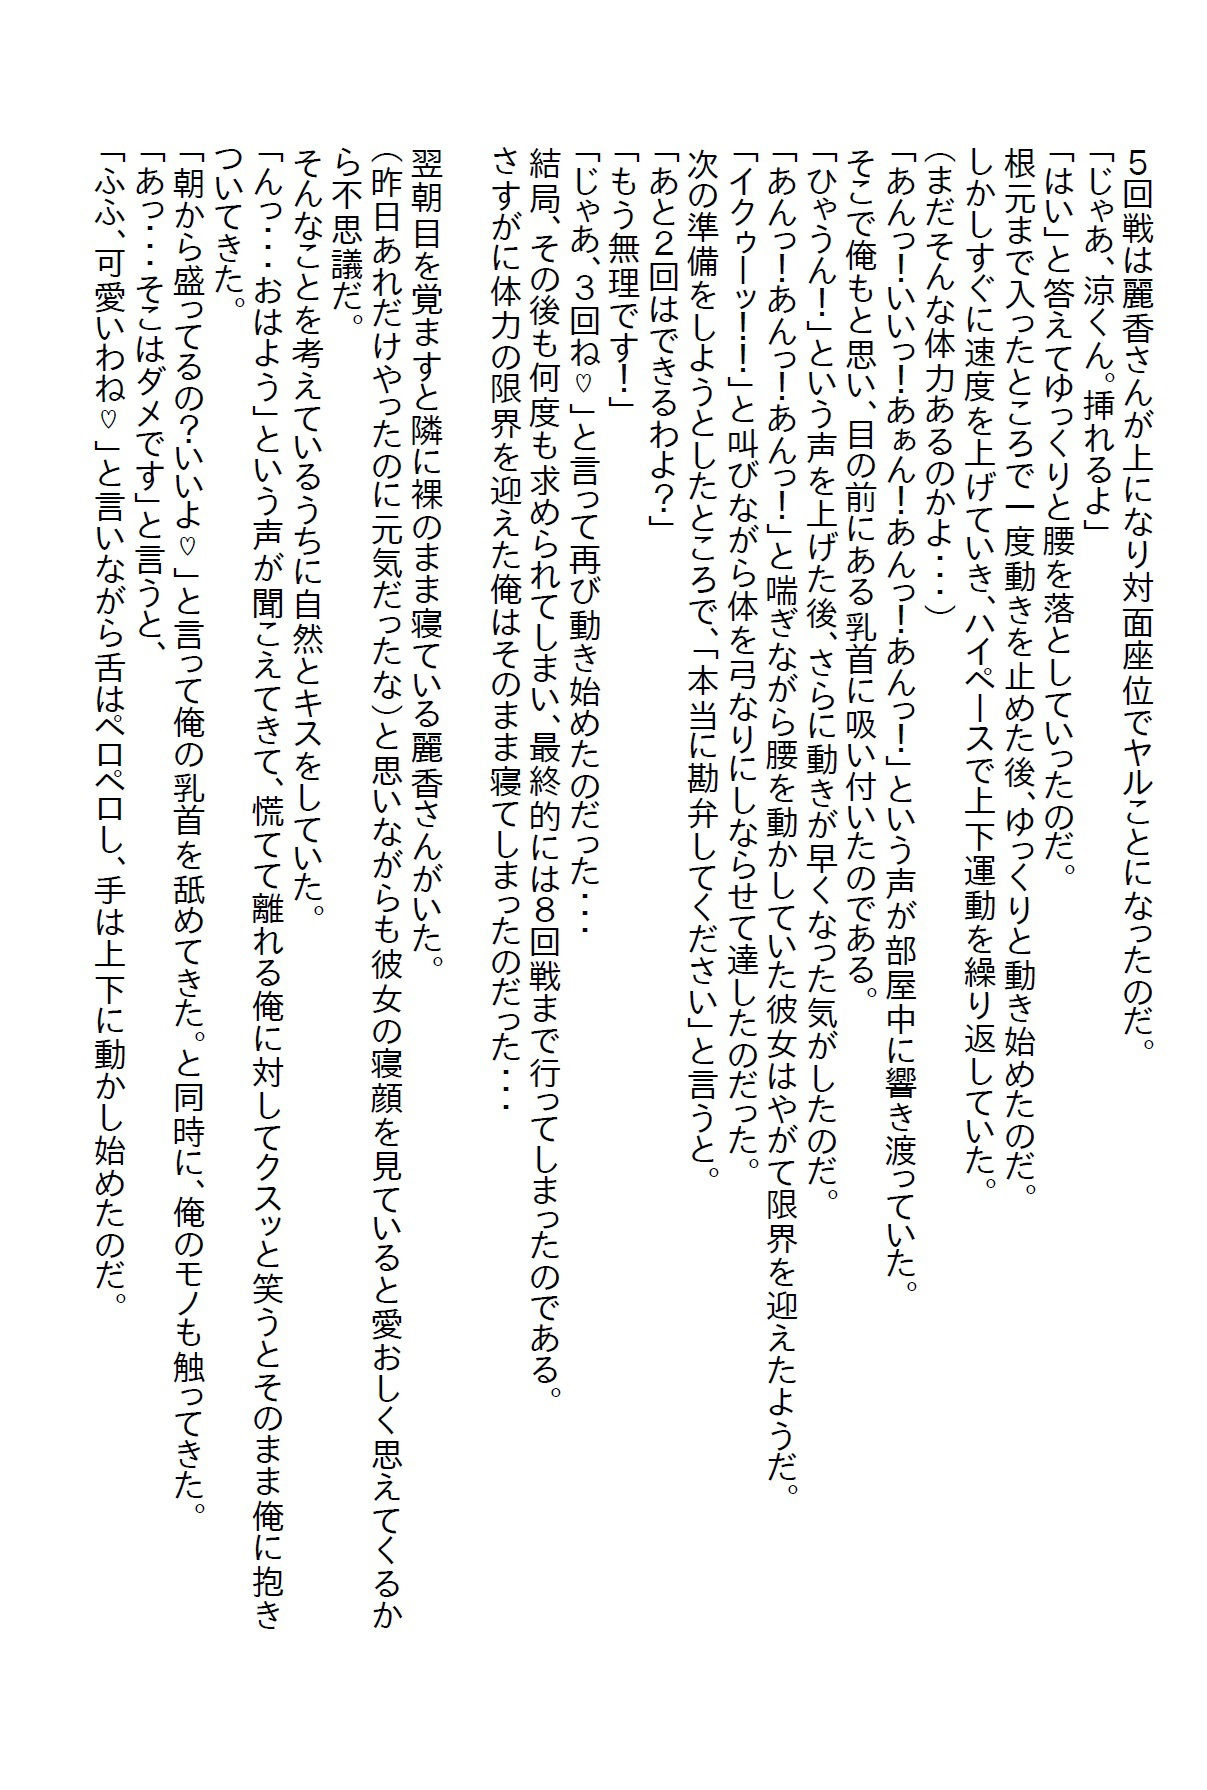 ５回戦は麗香さんが上になり対面座位でヤルことになったのだ。
「じゃあ、涼くん。挿れるよ」
「はい」と答えてゆっくりと腰を落としていったのだ。
根元まで入ったところで一度動きを止めた後、ゆっくりと動き始めたのだ。
しかしすぐに速度を上げていき、ハイペースで上下運動を繰り返していた。
（まだそんな体力あるのかよ・・・）
「あんっ！いいっ！あぁん！あんっ！あんっ！」という声が部屋中に響き渡っていた。
そこで俺もと思い、目の前にある乳首に吸い付いたのである。
「ひゃうん！」という声を上げた後、さらに動きが早くなった気がしたのだ。
「あんっ！あんっ！あんっ！」と喘ぎながら腰を動かしていた彼女はやがて限界を迎えたようだ。
「イクゥーッ！！」と叫びながら体を弓なりにしならせて達したのだった。
次の準備をしようとしたところで、「本当に勘弁してください」と言うと。
「あと２回はできるわよ？」
「もう無理です！」
「じゃあ、３回ね♡」と言って再び動き始めたのだった・・・
結局、その後も何度も求められてしまい、最終的には８回戦まで行ってしまったのである。
さすがに体力の限界を迎えた俺はそのまま寝てしまったのだった・・・
翌朝目を覚ますと隣に裸のまま寝ている麗香さんがいた。
（昨日あれだけやったのに元気だったな）と思いながらも彼女の寝顔を見ていると愛おしく思えてくるか
ら不思議だ。
そんなことを考えているうちに自然とキスをしていた。
「んっ・・・おはよう」という声が聞こえてきて、慌てて離れる俺に対してクスッと笑うとそのまま俺に抱き
ついてきた。
「朝から盛ってるの？いいよ♡」と言って俺の乳首を舐めてきた。と同時に、俺のモノも触ってきた。
「あっ・・・そこはダメです」と言うと、
「ふふ、可愛いわね♡」と言いながら舌はペロペロし、手は上下に動かし始めたのだ。